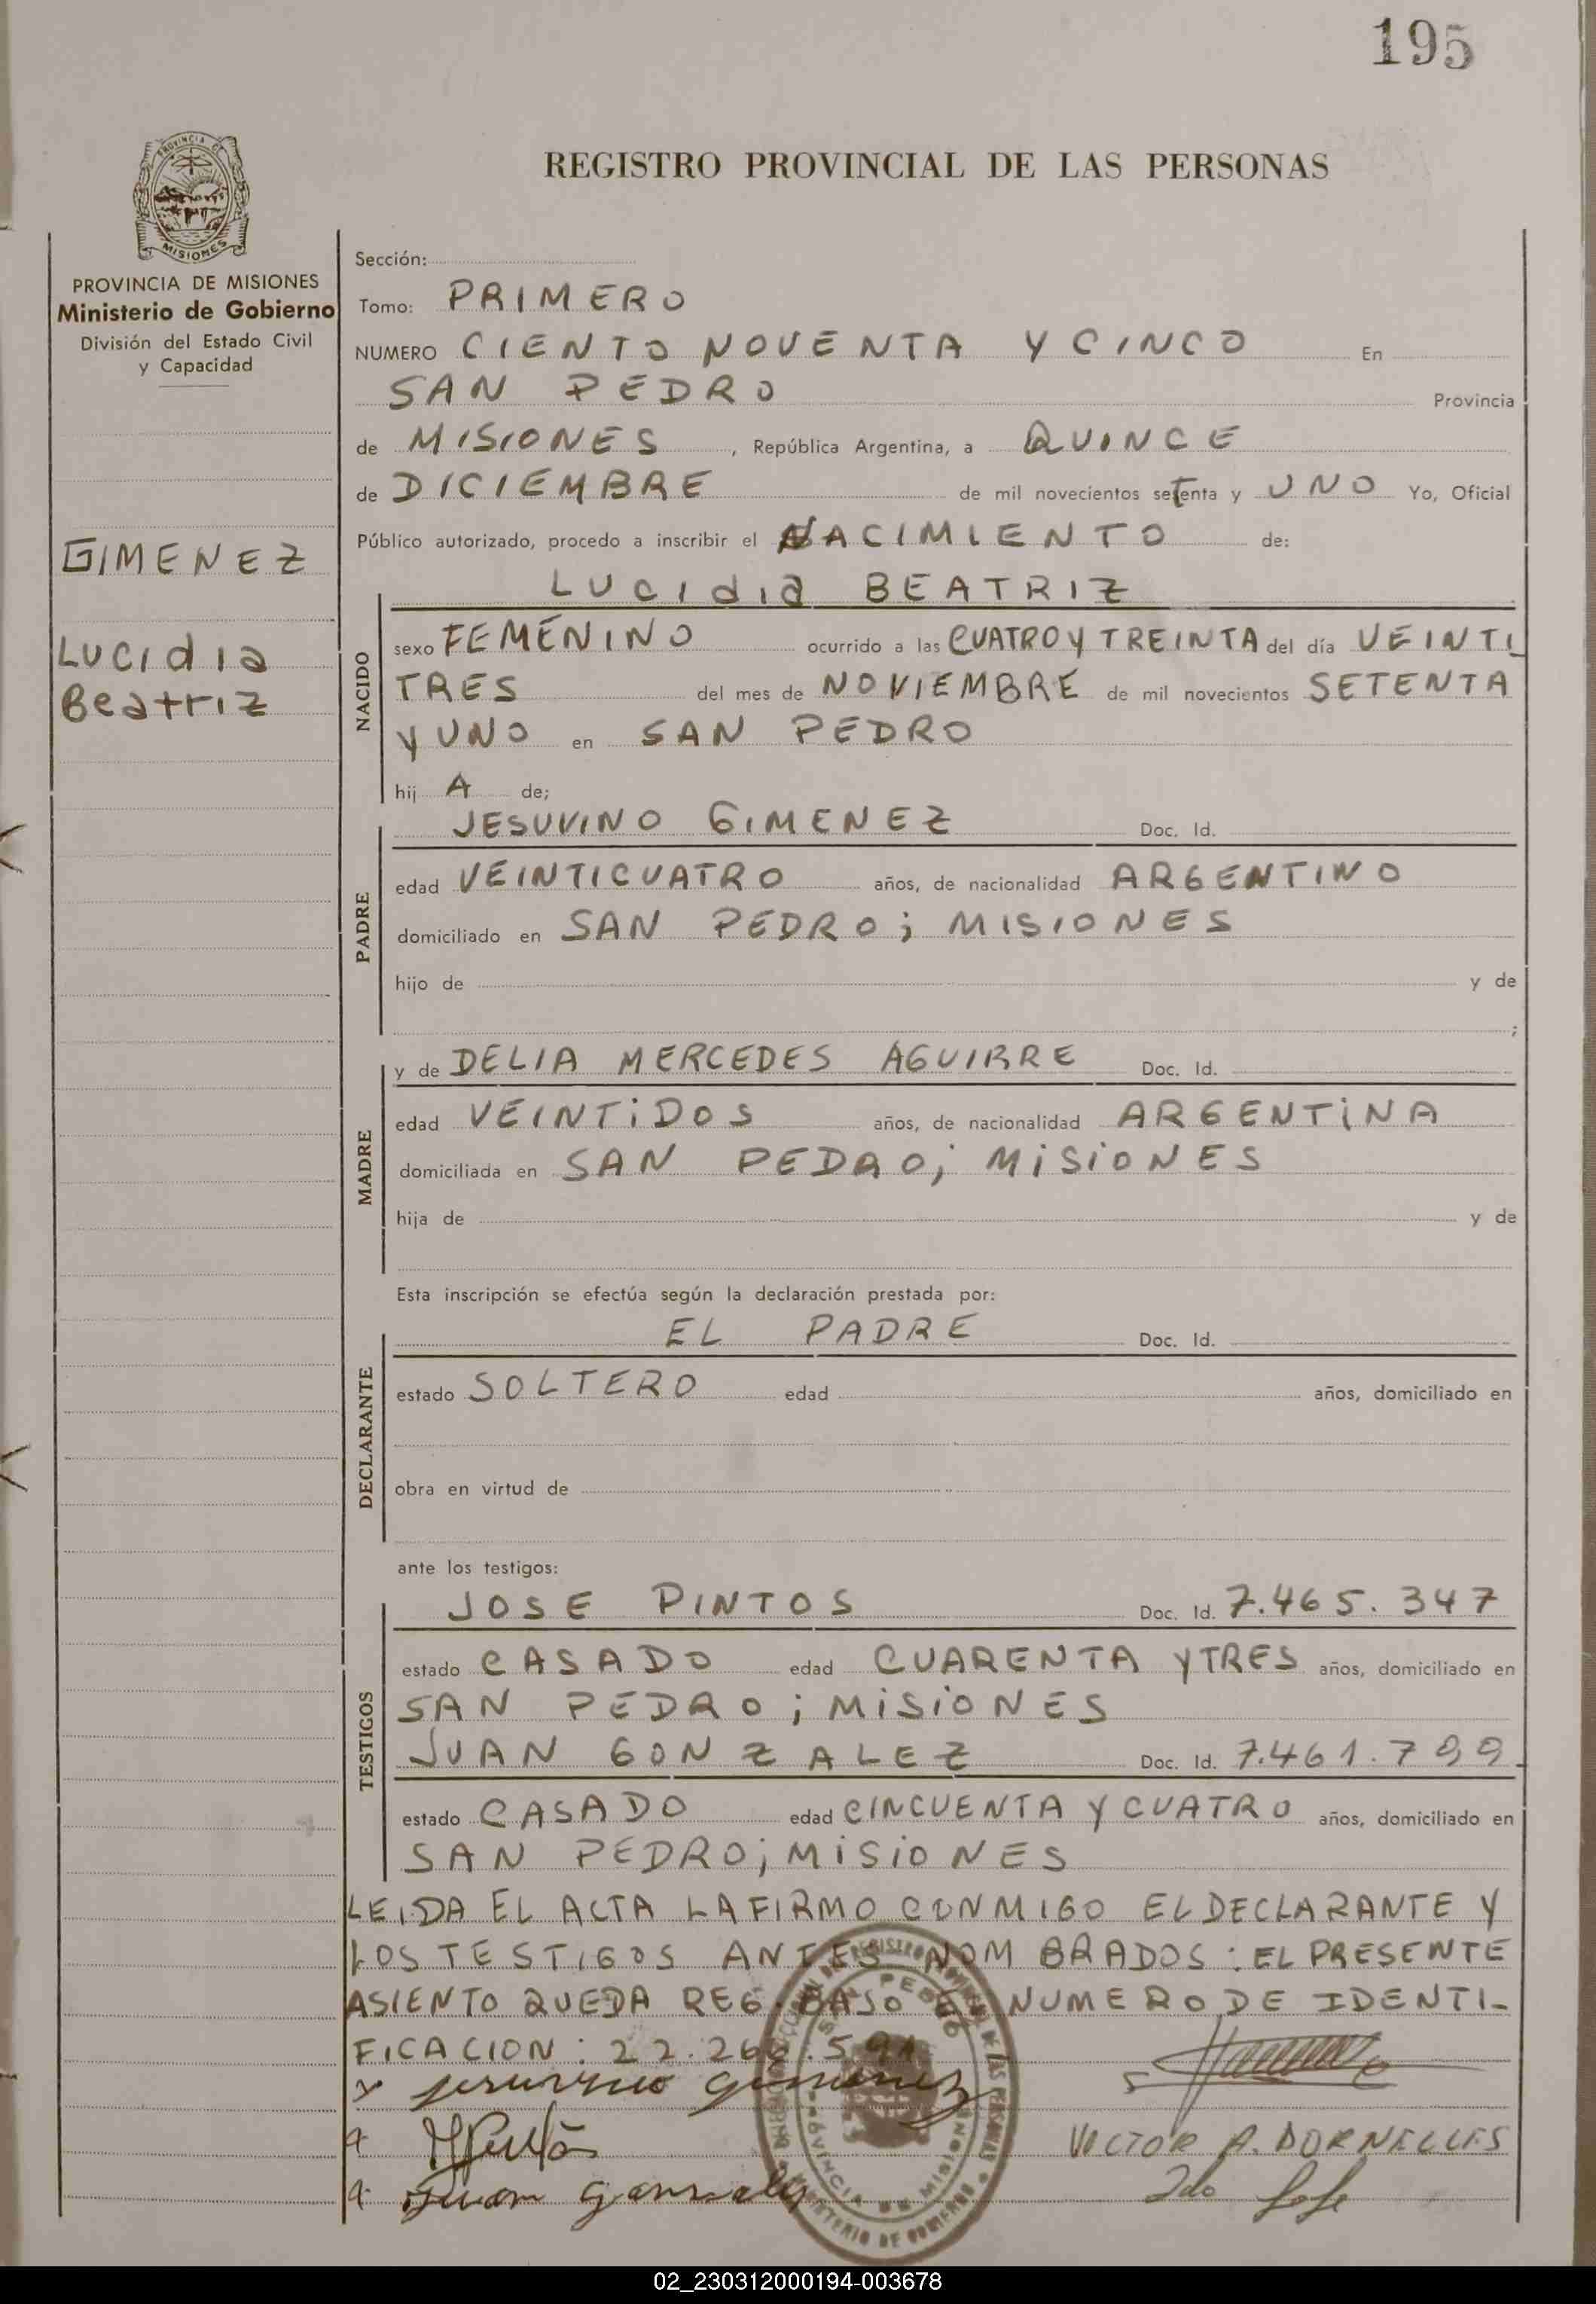 195
REGISTRO PROVINCIAL DE LAS PERSONAS
PROVINCIA DE MISIONES
Ministerio de Gobierno
División del Estado Civil
y Capacidad
GIMENEZ
Lucidia
Beatriz
Sección:
Tomo: PRIMERO
NUMERO CIENTO NOVENTA Y CINCO En
SAN PEDRO Provincia
de MISIONES, República Argentina, a QUINCE
de DICIEMBRE de mil novecientos setenta y UNO Yo, Oficial
Público autorizado, procedo a inscribir el NACIMIENTO de:
LUCIdia BEATRIZ
NACIDO
sexo FEMENINO ocurrido a las CUATRO Y TREINTA del día VEINTI
TRES del mes de NOVIEMBRE de mil novecientos SETENTA
Y UNO en SAN PEDRO
hij A de;
PADRE
JESUVINO GIMENEZ Doc. Id.
edad VEINTICUATRO años, de nacionalidad ARGENTINO
domiciliado en SAN PEDRO; MISIONES
hijo de y de
;
MADRE
y de DELIA MERCEDES AGUIRRE Doc. Id.
edad VEINTIDOS años, de nacionalidad ARGENTINA
domiciliada en SAN PEDRO; MISIONES
hija de y de
Esta inscripción se efectúa según la declaración prestada por:
DECLARANTE
EL PADRE Doc. Id.
estado SOLTERO edad años, domiciliado en
obra en virtud de
ante los testigos:
TESTIGOS
JOSE PINTOS Doc. Id. 7.465.347
estado CASADO edad CUARENTA Y TRES años, domiciliado en
SAN PEDRO; MISIONES
JUAN GONZALEZ Doc. Id. 7.461.799
estado CASADO edad CINCUENTA Y CUATRO años, domiciliado en
SAN PEDRO; MISIONES
LEIDA EL ACTA LA FIRMO CONMIGO EL DECLARANTE Y
LOS TESTIGOS ANTES NOMBRADOS: EL PRESENTE
ASIENTO QUEDA REG. BAJO EL NUMERO DE IDENTI-
FICACION: 22.266.591
Jesuvino Gimenez
Juan Gonzalez
VICTOR A. DORNELLES
2do Jefe
02_230312000194-003678